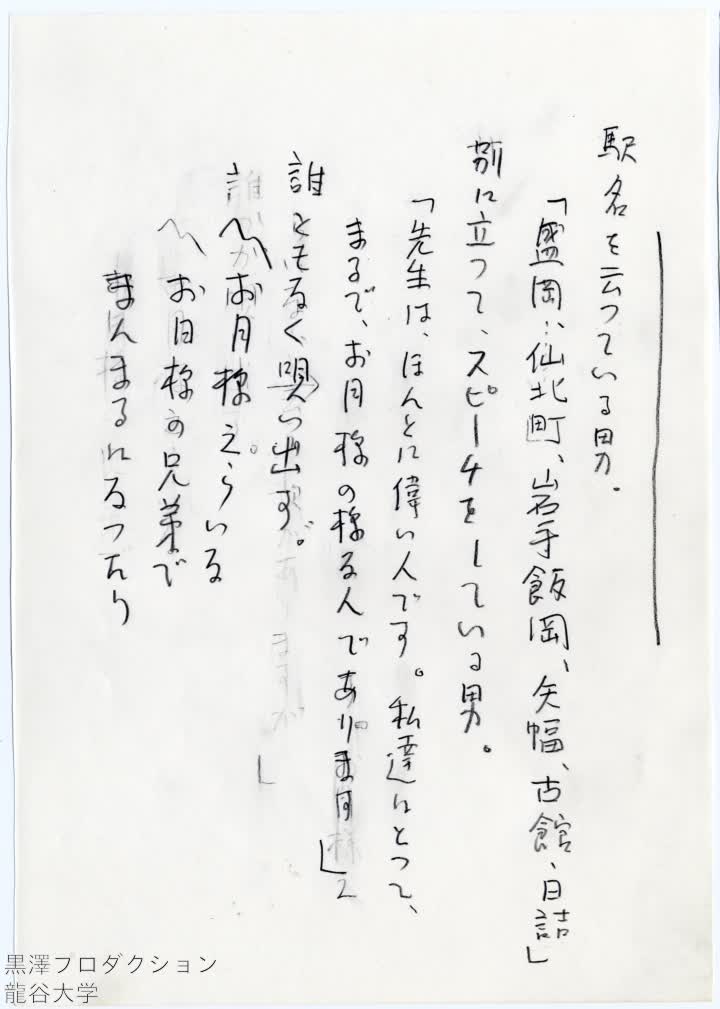 駅名を云つている男。
「盛岡、仙北町、岩手飯岡、矢幅、古館、日詰」
別に立つて、スピーチをしている男。
「先生は、ほんとに偉い人です。私達にとつて、
まるで、お月様の様な人であります」
誰ともなく唄い出す。
〽お月様えらいな
〽お日様の兄弟で
まんまるになつたり
黒澤プロダクション
龍谷大学